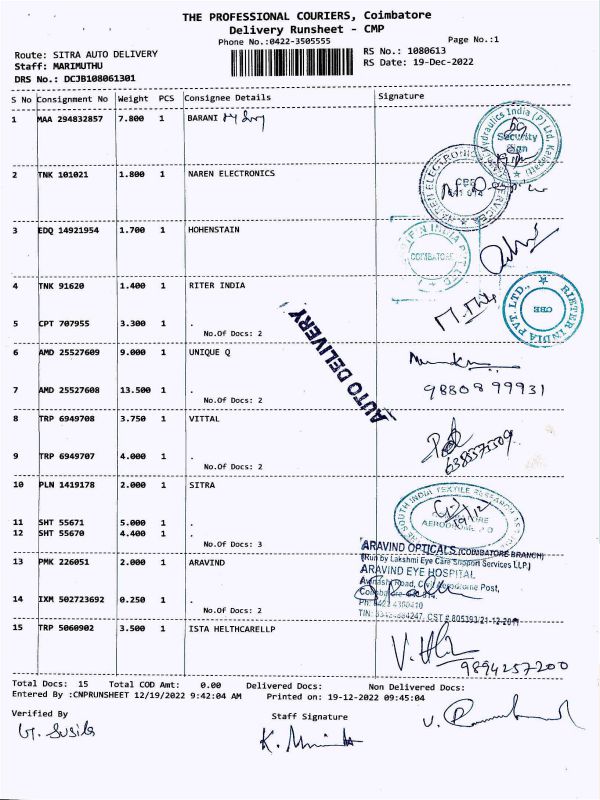 THE PROFESSIONAL COURIERS, Coimbatore
Delivery Runsheet - CMP
Phone No.:0422-3505555
Page No.:1
Route: SITRA AUTO DELIVERY
RS No.: 1080613
Staff: MARIMUTHU
RS Date: 19-Dec-2022
DRS No.: DCJB108061301
S No Consignment No Weight PCS Consignee Details Signature
1 MAA 294832857 7.800 1 BARANI
Hydraulics India (P) Ltd,
Security
Sign
2 TNK 101021 1.800 1 NAREN ELECTRONICS
NAREN ELECTRONIC SERVICES
CBE
641 014
3 EDQ 14921954 1.700 1 HOHENSTAIN
INDIA PVT LTD
COIMBATORE
4 TNK 91620 1.400 1 RITER INDIA
RIETER INDIA PVT. LTD.,
CBE
5 CPT 707955 3.300 1 .
No.Of Docs: 2
AUTO DELIVERY
6 AMD 25527609 9.000 1 UNIQUE Q
7 AMD 25527608 13.500 1 .
9880899931
No.Of Docs: 2
8 TRP 6949708 3.750 1 VITTAL
9 TRP 6949707 4.000 1 .
No.Of Docs: 2
10 PLN 1419178 2.000 1 SITRA
SOUTH INDIA TEXTILE RESEARCH
19/12
AERODROME P.O
11 SHT 55671 5.000 1 .
12 SHT 55670 4.400 1 .
No.Of Docs: 3
ARAVIND OPTICALS (COIMBATORE BRANCH)
(Run by Lakshmi Eye Care Support Services LLP)
13 PMK 226051 2.000 1 ARAVIND
ARAVIND EYE HOSPITAL
Avinashi Road, Civil Aerodrome Post,
14 IXM 502723692 0.250 1 .
No.Of Docs: 2
15 TRP 5060902 3.500 1 ISTA HELTHCARELLP
9894257200
Total Docs: 15 Total COD Amt: 0.00 Delivered Docs: Non Delivered Docs:
Entered By :CNPRUNSHEET 12/19/2022 9:42:04 AM Printed on: 19-12-2022 09:45:04
Verified By
Staff Signature